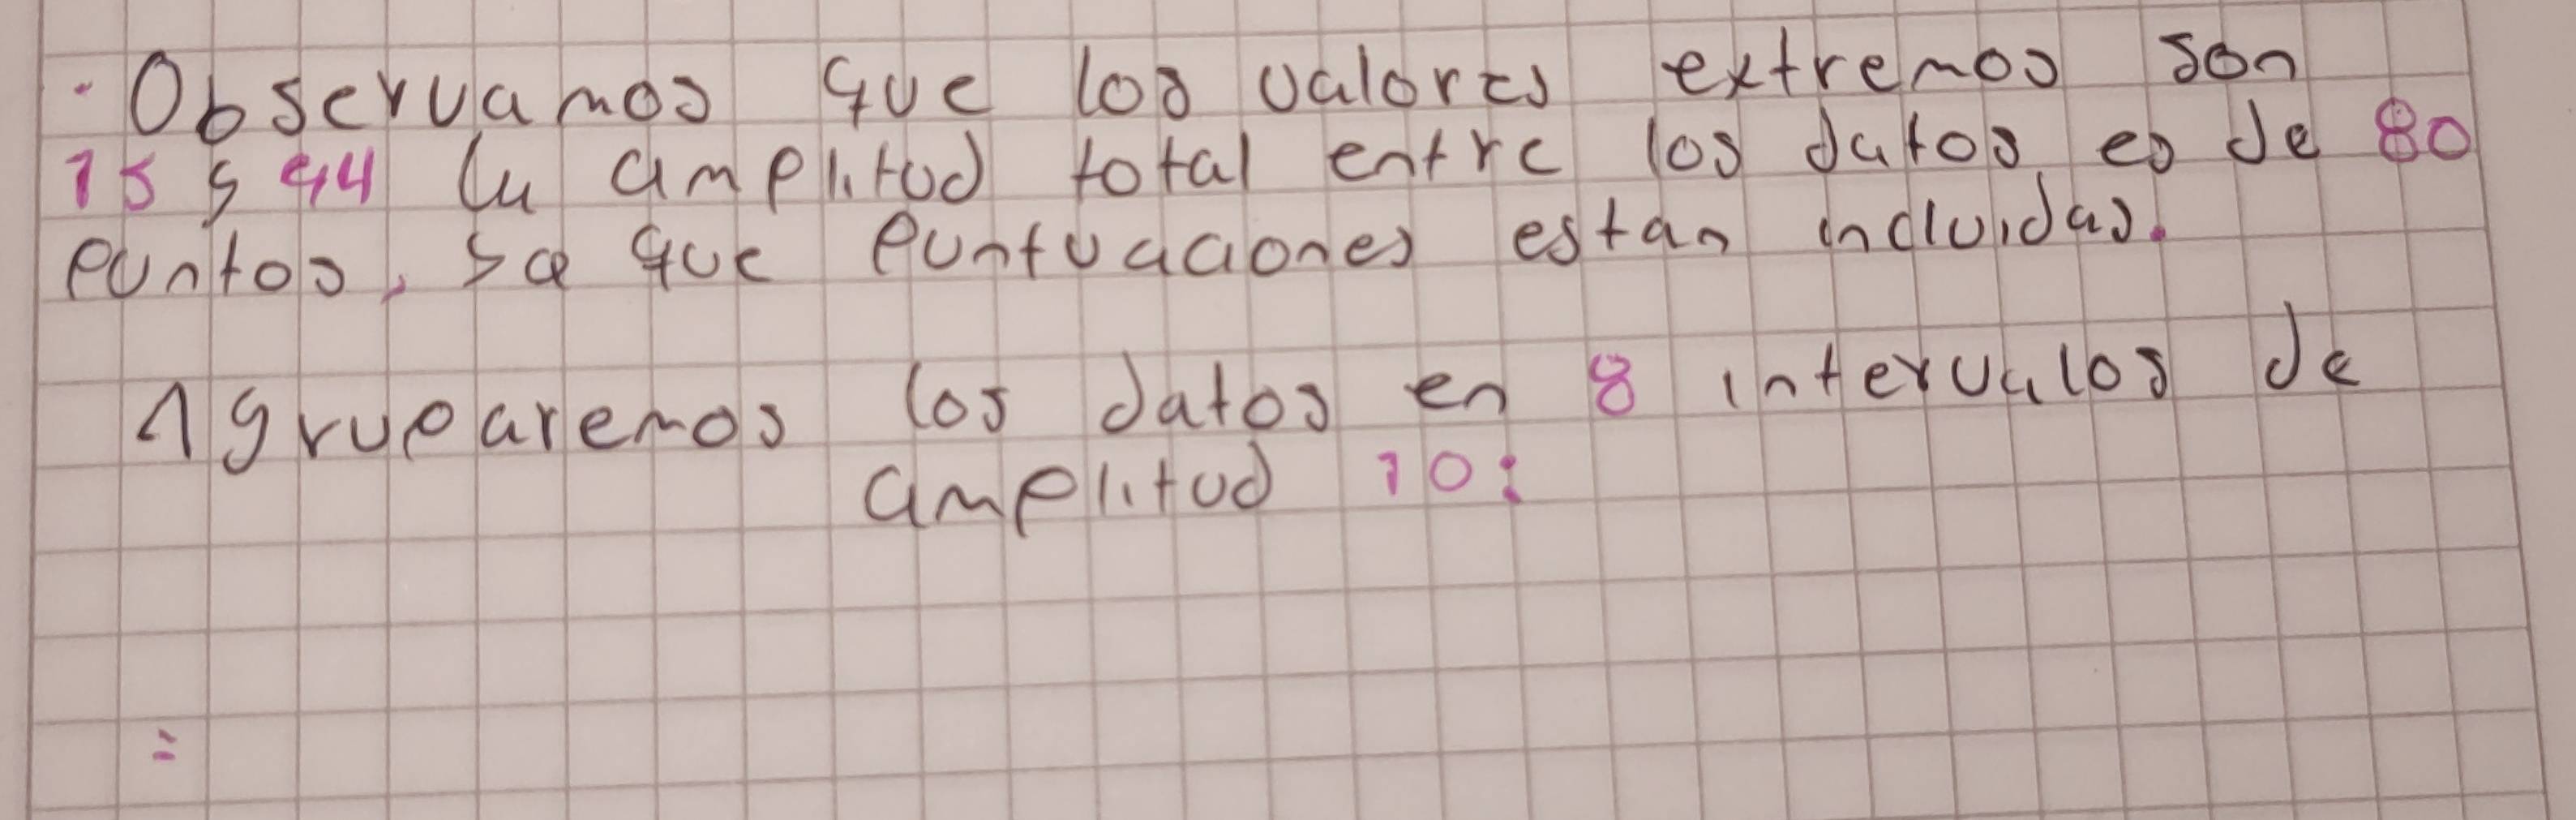 · Observamos que los valores extremos son
15 y 94 la amplitud total entre los datos es de 80
puntos, ya que puntuaciones estan incluidas.
Agruparemos los datos en 8 intervalos de
amplitud 10:
=